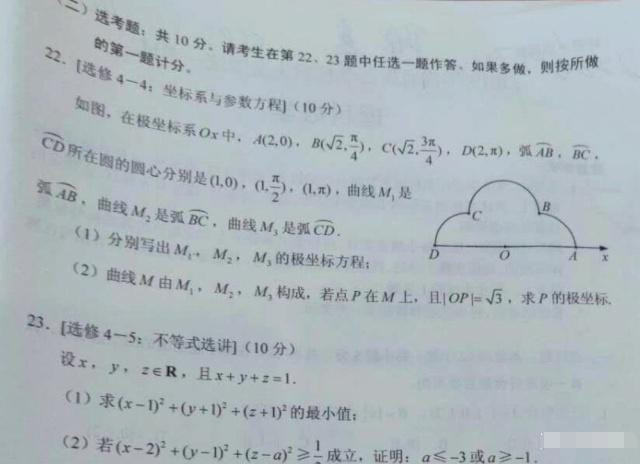 (二)选考题:共10分。请考生在第22、23题中任选一题作答。如果多做,则按所做
的第一题计分。
22. [选修4—4:坐标系与参数方程](10分)
如图,在极坐标系Ox中,A(2,0),B(√2,π/4),C(√2,3π/4),D(2,π),弧AB,BC,
CD所在圆的圆心分别是(1,0),(1,π/2),(1,π),曲线M₁是
弧AB,曲线M₂是弧BC,曲线M₃是弧CD.
(1)分别写出M₁,M₂,M₃的极坐标方程;
(2)曲线M由M₁,M₂,M₃构成,若点P在M上,且|OP|=√3,求P的极坐标.
C B
D O A x
23. [选修4—5:不等式选讲](10分)
设x,y,z∈R,且x+y+z=1.
(1)求(x-1)²+(y+1)²+(z+1)²的最小值;
(2)若(x-2)²+(y-1)²+(z-a)²≥1/ 成立,证明:a≤-3或a≥-1.